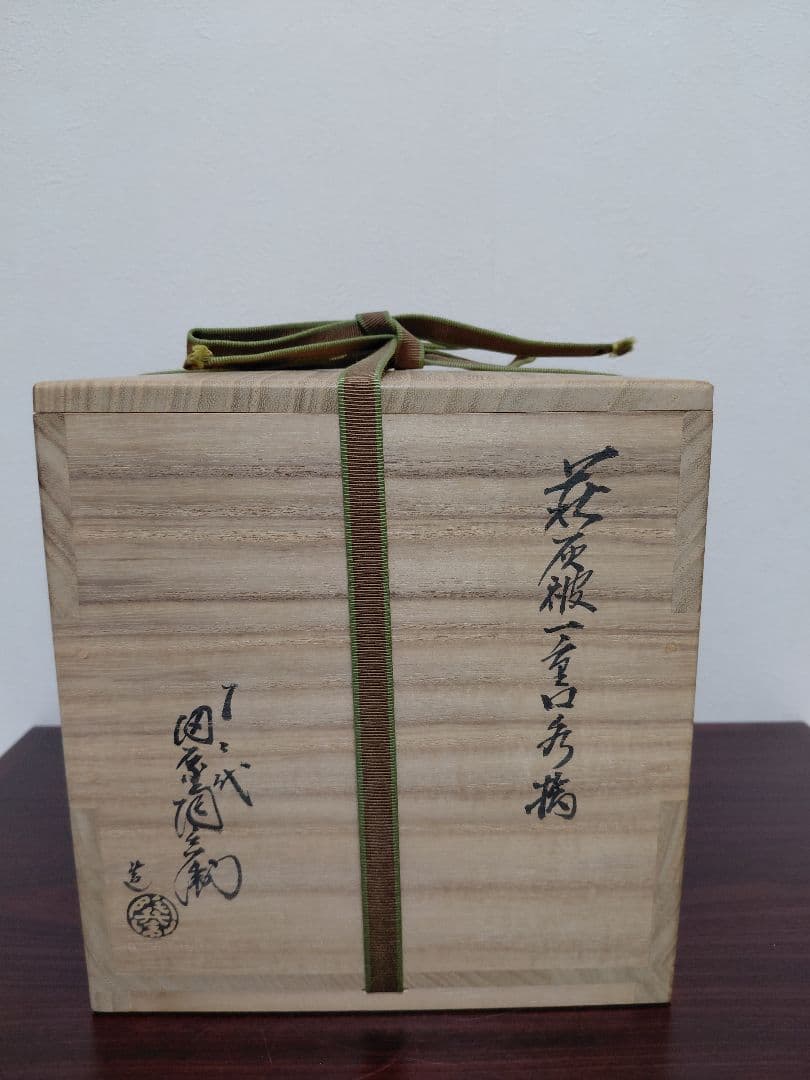 萩灰被一重口水指
十二代
田原陶兵衛
造